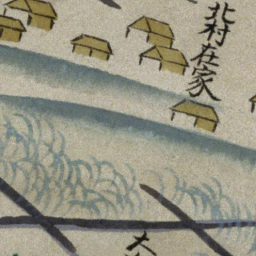 北村在家
大